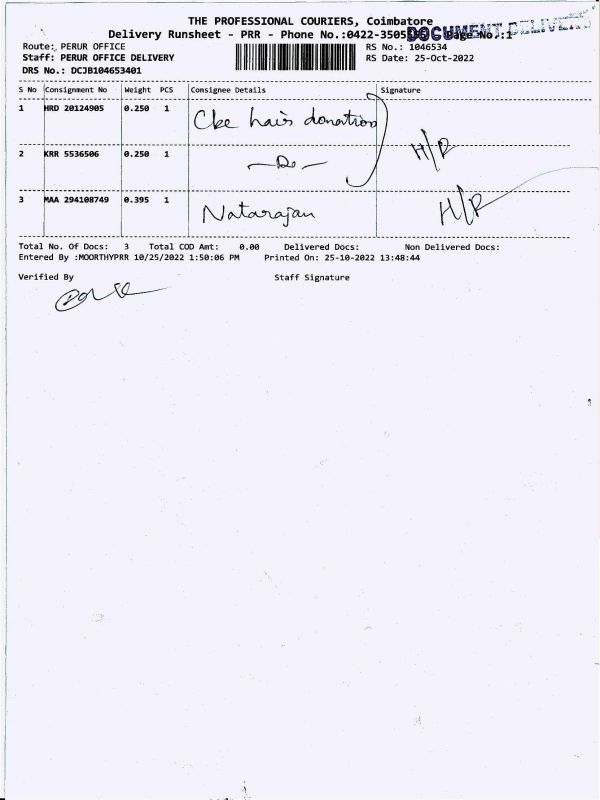 THE PROFESSIONAL COURIERS, Coimbatore
Delivery Runsheet - PRR - Phone No.:0422-3505 Page No.:1
DOCUMENT DELIVERED
Route: PERUR OFFICE RS No.: 1046534
Staff: PERUR OFFICE DELIVERY RS Date: 25-Oct-2022
DRS No.: DCJB104653401
S No Consignment No Weight PCS Consignee Details Signature
1 HRD 20124905 0.250 1 Cbe hair donation
2 KRR 5536506 0.250 1 —Do— H/R
3 MAA 294108749 0.395 1 Natarajan H/R
Total No. Of Docs: 3 Total COD Amt: 0.00 Delivered Docs: Non Delivered Docs:
Entered By :MOORTHYPRR 10/25/2022 1:50:06 PM Printed On: 25-10-2022 13:48:44
Verified By Staff Signature